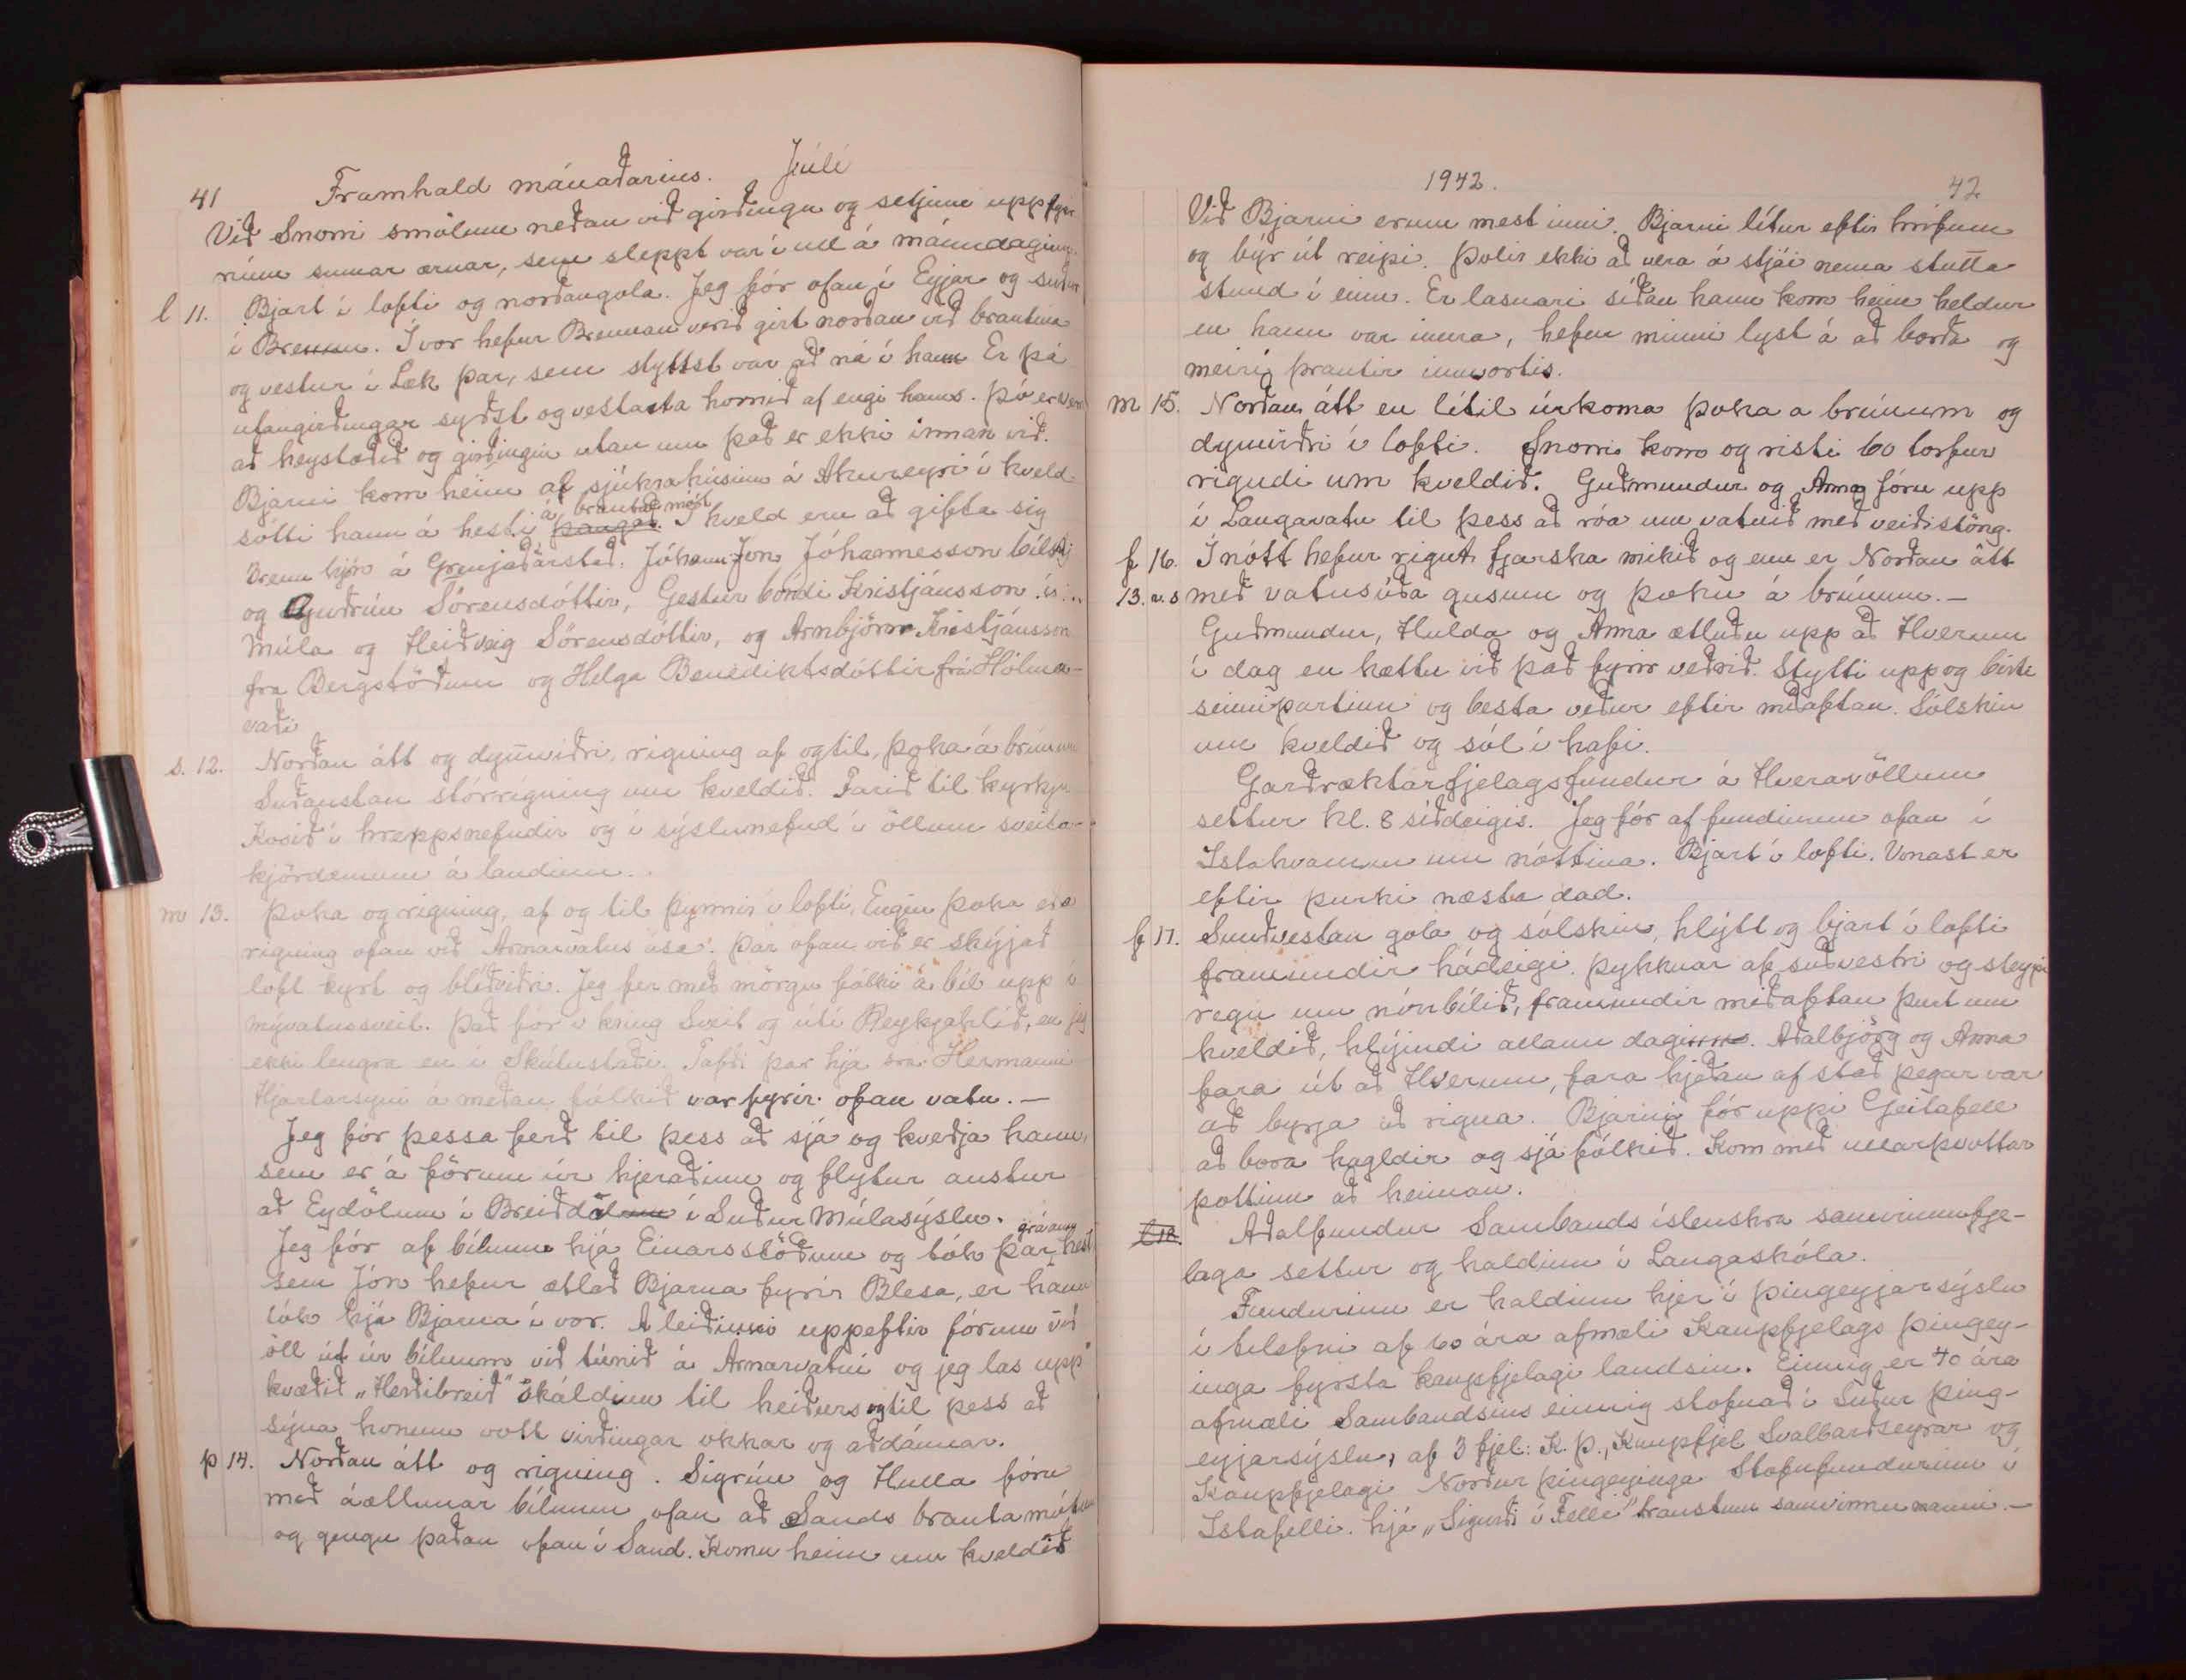 41 Framhald mánaðarins. Júlí
Við Snorri smölum neðan við girðingu og setjum upp fyr
rúm sumar ærnar, sem sleppt var í ull á mánudaginn.
l 11. Bjart í lofti og norðangola. Jeg fór ofan í Eyjar og suður
í Brennu. Í vor hefur Brennan verið girt norðan við brautina
og vestur í Læk þar, sem styttst var að ná í hann Er þá
utangirðingar syðst og vestasta hornið af engi hans. Þó er
að heystæðið og girðingin utan um það er ekki innan við.
Bjarni kom heim af sjúkrahúsinu á Akureyri í kveld.
á brautað mót
sótti hann á hesti þangað. Í kveld eru að gifta sig
þrenn hjón á Grenjaðarstað. Jóhann Jón Jóhannesson bílstj
og Guðrún Sörensdóttir, Gestur bóndi Kristjánsson í
Múla og Heiðveig Sörensdóttir, og Arnbjörn Kristjánsson
fra Bergstöðum og Helga Benediktsdóttir frá Hólma-
vaði
s. 12. Norðan átt og dymviðri, rigning af og til, þoka á brúnum
Suðaustan stórrigning um kveldið. Farið til kyrkju
Kosið í hreppsnefndir og í sýslunefnd í öllum sveita-
kjördæmum á landinu.
m 13. Þoka og rigning, af og til þynnir í lofti, Engin þoka eða
rigning ofan við Arnarvatns ása. Þar ofan við er skýjað
loft kyrt og blíðviðri. Jeg fer með mörgu fólki á bíl upp í
mývatnssveit. Það fór í kring Sveit og úti Reykjahlíð, en jeg
ekki lengra en í Skútustaði. Tafði þar hjá sra. Hermanni
Hjartarsyni á meðan fólkið var fyrir ofan vatn. —
Jeg fór þessa ferð til þess að sjá og kveðja hann,
sem er á förum úr hjeraðinu og flytur austur
að Eydölum í Breiðdal í Suður Múlasýslu.
gráan
Jeg fór af bílnum hjá Einarsstöðum og tók þar hest
sem Jón hefur ætlað Bjarna fyrir Blesa, er hann
tók hjá Bjarna í vor. Á leiðinni uppeftir fórum við
öll út úr bílnum við túnið á Arnarvatni og jeg las upp
kvæðið „Herðibreið" skáldinu til heiðurs og til þess að
sýna honum vott virðingar okkar og aðdáunar.
þ 14. Norðan átt og rigning. Sigrún og Hulla fóru
með áætlunar bílnum ofan að Sands brauta mótum
og gengu þaðan ofan í Sand. Komu heim um kveldið
1942. 42
Við Bjarni erum mest inni. Bjarni lítur eftir hrífum
og býr út reipi. Þolir ekki að vera á stjái nema stutta
stund í einu. Er lasnari síðan hann kom heim heldur
en hann var innra, hefur minni lyst á að borða og
meiri þrautir innvortis.
m 15. Norðan átt en lítil úrkoma þoka a brúnum og
dymviðri í lofti. Snorri kom og risti 60 torfur
rigndi um kveldið. Guðmundur og Anna fóru upp
í Langavatn til þess að róa um vatnið með veiðistöng.
f 16. Í nótt hefur rignt fjarska mikið og enn er Norðan átt
13. v. s með vatnsúða gusum og þoku á brúnum. —
Guðmundur, Hulda og Anna ætluðu upp að Hverum
í dag en hættu við það fyrir veðrið. Stytti upp og birti
seinnipartinn og besta veður eftir miðaftan. Sólskin
um kveldið og sól í hafi.
Garðræktarfjelagsfundur á Hveravöllum
settur kl. 8 síðdeigis. Jeg fór af fundinum ofan í
Istahvamm um nóttina. Bjart í lofti. Vonast er
eftir þurki næsta dad.
f 17. Suðvestan gola og sólskin, hlýtt og bjart í lofti
framundir hádeigi. Þykknar af suðvestri og steypi
regn um nónbilið, framundir miðaftan þurt um
kveldið, hlýindi allann daginn. Aðalbjörg og Anna
fara út að Hverum, fara hjeðan af stað þegar var
að byrja að rigna. Bjarni fór uppí Geitafell
að bora hagldir og sjá fólkið. Kom með ullarþvottar
pottinn að heiman.
l 18. Aðalfundur Sambands íslenskra samvinnufje-
laga settur og haldinn í Laugaskóla.
Fundurinn er haldinn hjer í þingeyjarsýslu
í tilefni af 60 ára afmæli Kaupfjelags þingey-
inga fyrsta kaupfjelagi landsin. Einnig er 40 ára
afmæli Sambandsins einnig stofnað í Suður þing-
eyjarsýslu, af 3 fjel: K. Þ., Kaupfjel Svalbarðseyrar og
Kaupfjelagi Norður þingeyinga Stofnfundurinn í
Istafelli. hjá „Sigurði í Felli" traustum samvinnu manni. —